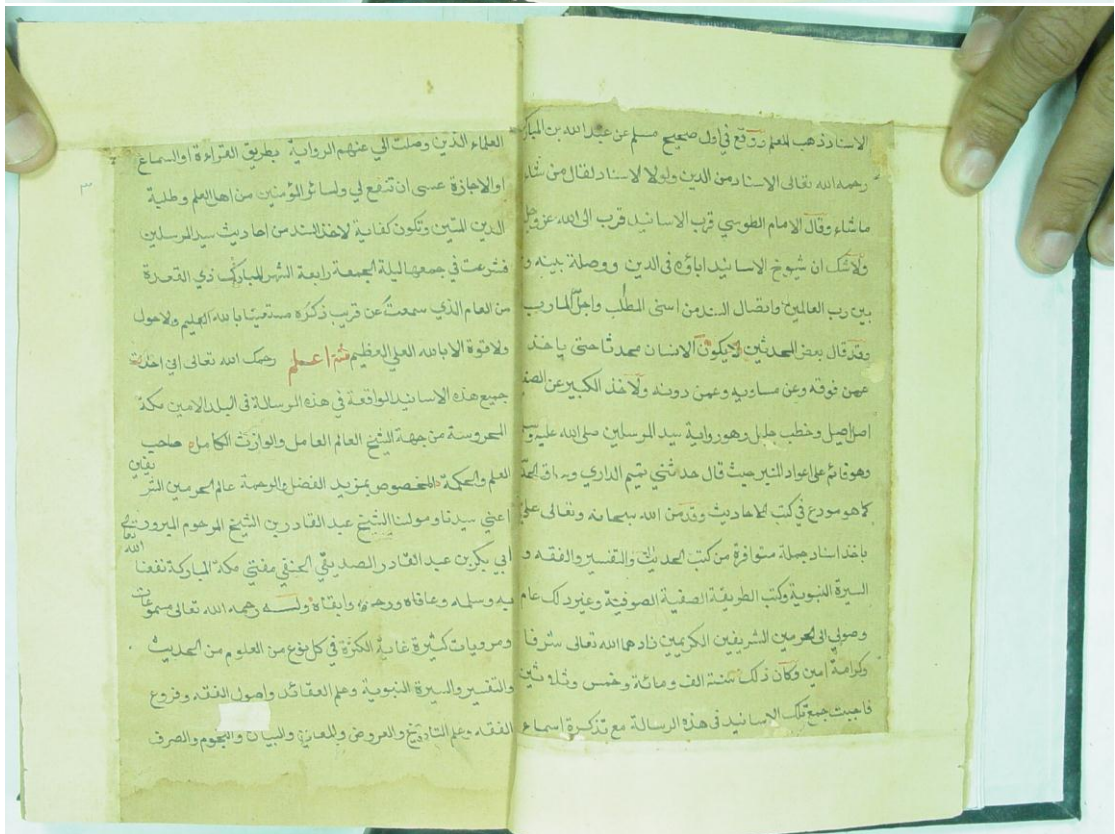 الاسناد ذهب المعلم ووقع في اول صحيح مسلم عن عبد الله بن المبارك
رحمه الله تعالى الاسناد من الدين ولولا الاسناد لقال من شاء
ما شاء وقال الامام الطوسي قرب الاسانيد قرب الى الله عز وجل
ولا شك ان شيوخ الاسانيد اباؤه في الدين ووصلة بينه و
بين رب العالمين واتصال السند من اسنى المطلب واجل المارب
وقد قال بعض المحدثين لا يكون الانسان محدثا حتى ياخذ
عمن فوقه وعن مساويه وعمن دونه ولاخذ الكبير عن الصغير
اصل اصيل وخطب جليل وهو رواية سيد المرسلين صلى الله عليه وسلم
وهو قائم على اعواد المنبر حيث قال حدثني تميم الداري وساق الحديث
كما هو مودع في كتب الاحاديث وقد من الله سبحانه وتعالى علي
باخذ اسناد جملة متوافرة من كتب الحديث والتفسير والفقه و
السيرة النبوية وكتب الطريقة الصفية الصوفية وغير ذلك عام
وصولي الى الحرمين الشريفين الكريمين زادهما الله تعالى شرفا
وكرامة امين وكان ذلك سنة الف ومائة وخمس وثلاثين
فاحببت جمع تلك الاسانيد في هذه الرسالة مع تذكرة اسماء
٣
العلماء الذين وصلت الي عنهم الرواية بطريق القراءة او السماع
او الاجازة عسى ان تنفع لي ولسائر المؤمنين من اهل العلم وطلبة
الدين المتين وتكون كفاية لاخذ السند من احاديث سيد المرسلين
فشرعت في جمعها ليلة الجمعة رابعة الشهر المبارك ذي القعدة
من العام الذي سمعت عن قريب ذكره مستعينا بالله العليم ولا حول
ولا قوة الا بالله العلي العظيم ثم اعلم رحمك الله تعالى اني اخذت
جميع هذه الاسانيد الواقعة في هذه الرسالة في البلد الامين مكة
المحروسة من جهة الشيخ العالم العامل والوارث الكامل صاحب
العلم والحكمة المخصوص بمزيد الفضل والرحمة عالم الحرمين الشريفين
اعني سيدنا ومولنا الشيخ عبد القادر بن الشيخ المرحوم المبرور
ابي بكر بن عبد القادر الصديقي الحنفي مفتي مكة المباركة نفعنا الله تعالى
به وسلمه وعافاه ورحمه وابقاه وله رحمه الله تعالى مسموعات
ومرويات كثيرة غاية الكثرة في كل نوع من العلوم من الحديث
والتفسير والسيرة النبوية وعلم العقائد واصول الفقه وفروع
الفقه وعلم التاريخ والعروض والمعاني والبيان والنجوم والصرف